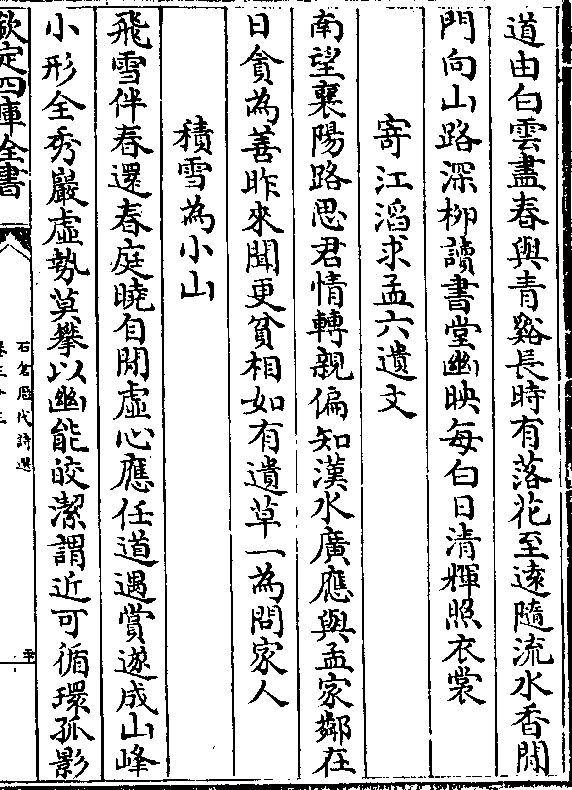 道由白雲盡春與青谿長時有落花至遠隨流水香閒
門向山路深柳讀書堂幽映每白日清輝照衣裳
寄江滔求孟六遺文
南望襄陽路思君情轉親偏知漢水廣應與孟家鄰在
日貪為善昨來聞更貧相如有遺草一為問家人
積雪為小山
飛雪伴春還春庭曉自閒虛心應任道遇賞遂成山峰
小形全秀巖虛勢莫攀以幽能皎潔謂近可循環孤影
欽定四庫全書
石倉歷代詩選
卷三十三